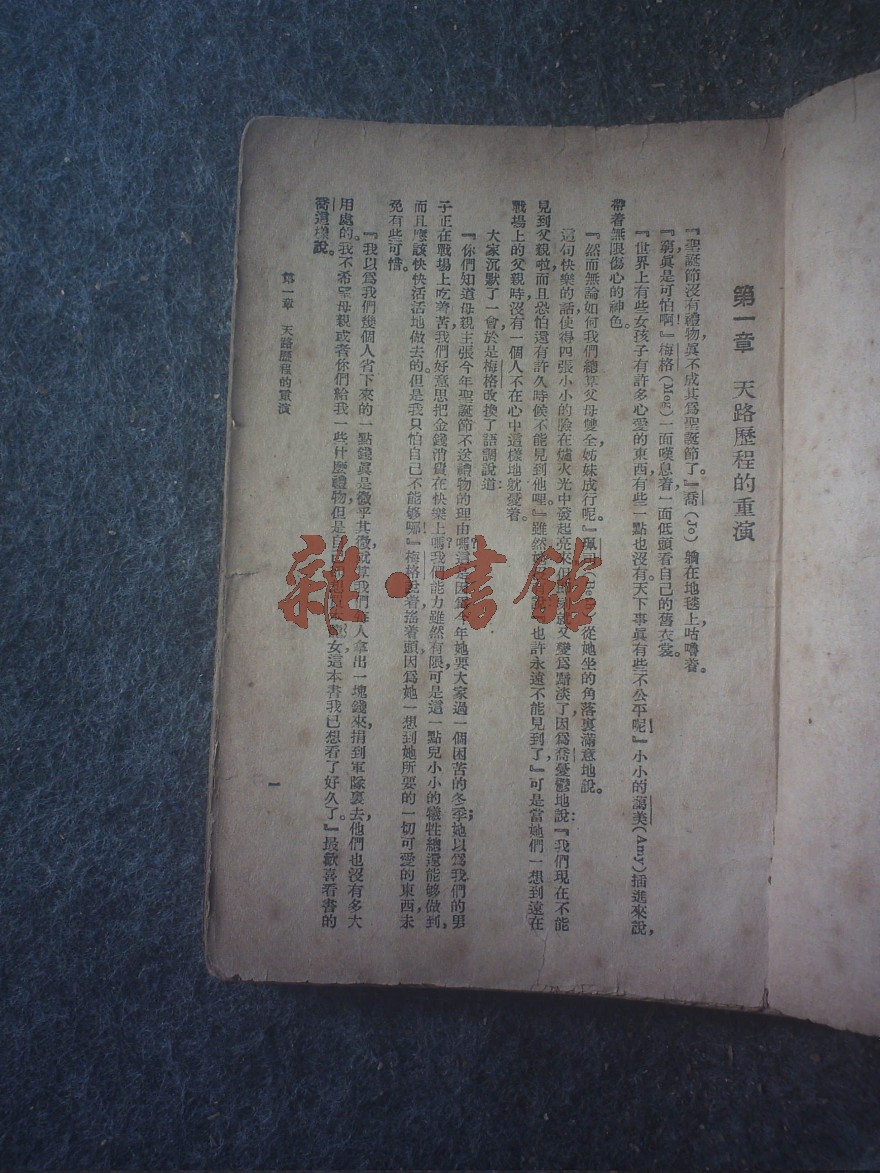 第一章 天路歷程的重演
『聖誕節沒有禮物，眞不成其爲聖誕節了。』喬(Jo)躺在地毯上咕嚕着。
『窮眞是可怕啊！』梅格(Meg)一面嘆息着，一面低頭看自己的舊衣裳。
『世界上有些女孩子有許多心愛的東西，有些一點也沒有。天下事眞有些不公平呢！』小小的藹美(Amy)插進來說，
帶着無限傷心的神色。
『然而無論如何我們總算父母雙全，姊妹成行呢。』 從她坐的角落裏滿意地說。
這句快樂的話使得四張小小的臉在爐火光中發起亮來，但 又變爲黯淡了，因爲喬憂鬱地說：『我們現在不能
見到父親啦，而且恐怕還有許久時候不能見到他哩。』雖然 也許永遠不能見到了，』可是當她們一想到遠在
戰場上的父親時，沒有一個人不在心中這樣地就憂着。
大家沉默了一會，於是梅格改換了語調說道：
『你們知道母親主張今年聖誕節不送禮物的理由嗎？這是因爲今年她要大家過一個困苦的冬季；她以爲我們的男
子正在戰場上吃着苦，我們好意思把金錢消費在快樂上嗎？我們能力雖然有限，可是這一點兒小小的犧牲總還能够做到，
而且應該快快活活地做去的。但是我只怕自己不能够哪！』梅格說着，搖着頭，因爲她一想到她所要的一切可愛的東西，未
免有些可惜。
『我以爲我們幾個人省下來的一點錢眞是微乎其微，就算我們每人拿出一塊錢來，捐到軍隊裏去，他們也沒有多大
用處的。我不希望母親或者你們給我一些什麼禮物，但是自己 女這本書我已想看了好久了。』最歡喜看書的
喬這樣說。
第一章 天路歷程的重演
一
雜·書館